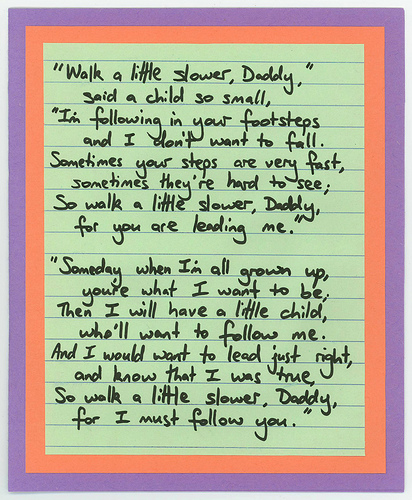 "Walk a little slower, Daddy,"
said a child so small,
"I'm following in your footsteps
and I don't want to fall.
Sometimes your steps are very fast,
sometimes they're hard to see;
So walk a little slower, Daddy,
for you are leading me."
"Someday when I'm all grown up,
you're what I want to be,
Then I will have a little child,
who'll want to follow me.
And I would want to lead just right,
and know that I was true,
So walk a little slower, Daddy,
for I must follow you."